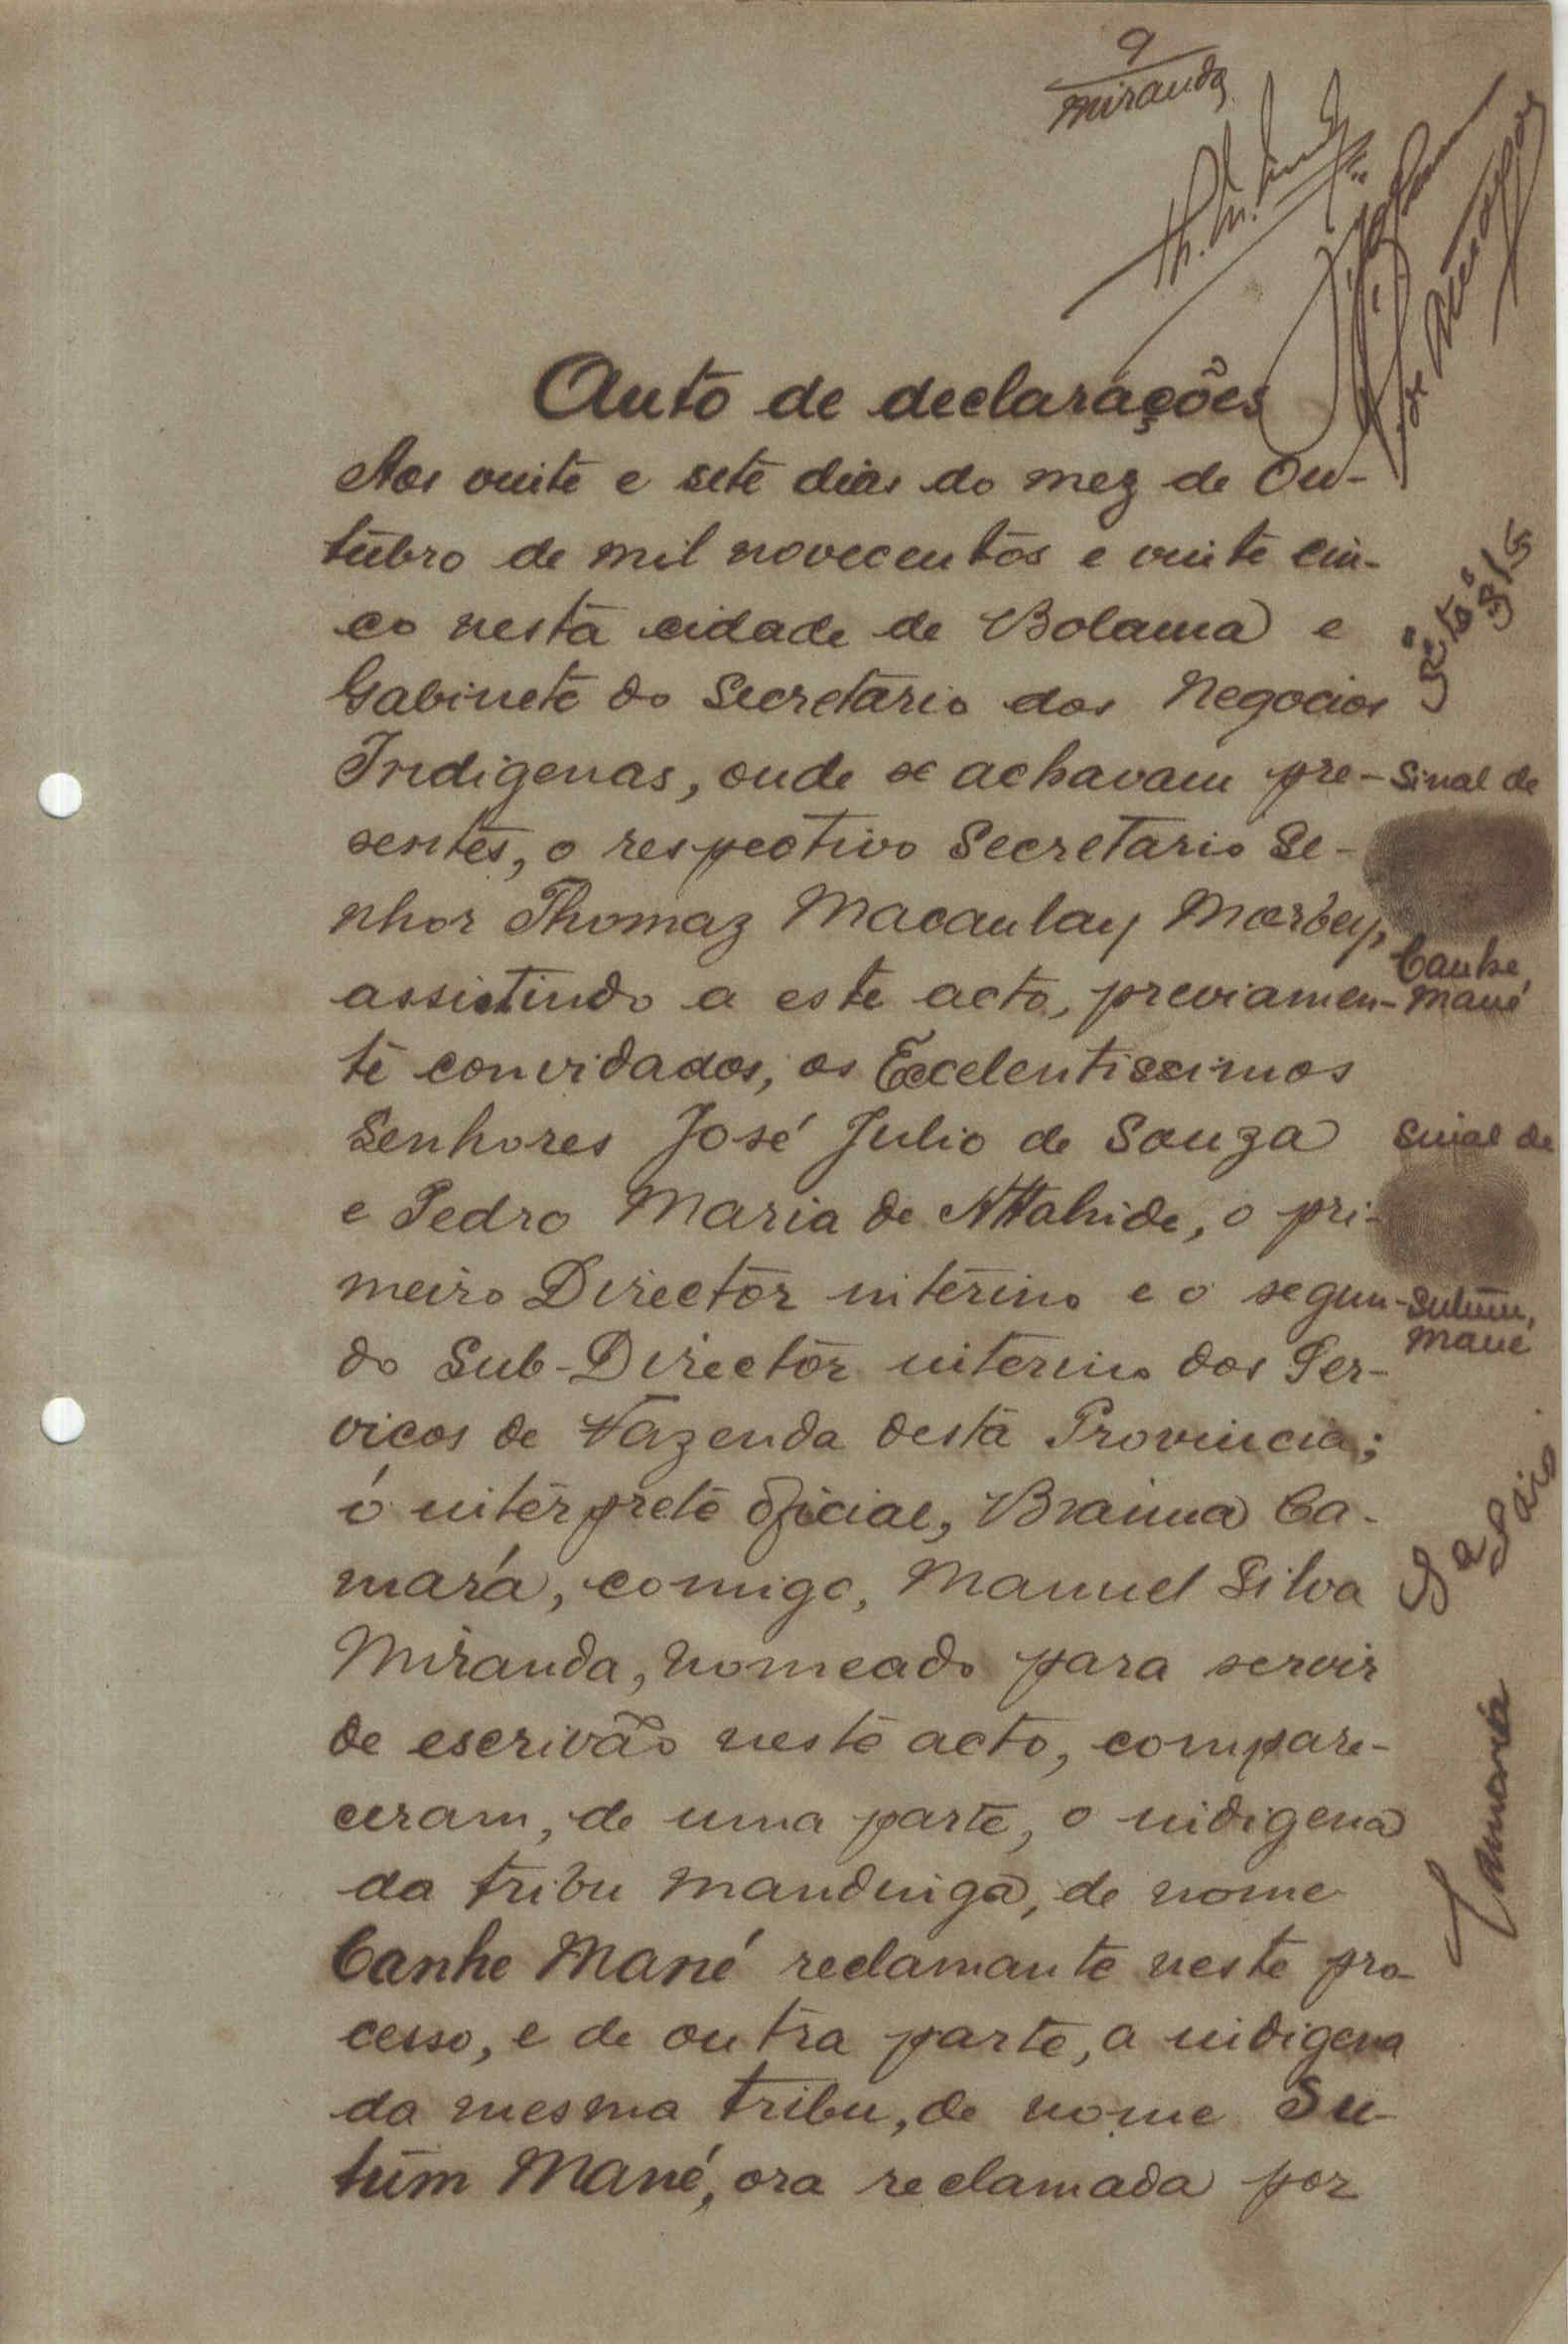 9
Miranda
Auto de declarações
Aos vinte e sete dias do mez de Ou-
tubro de mil novecentos e vinte cin-
co nesta cidade de Bolama e
Gabinete do Secretario dos Negocios
Indigenas, onde se achavam pre-
sentes, o respectivo Secretario Se-
nhor Thomaz Macaulay Marbey,
assistindo a este acto, previamen-
te convidados, os Excelentissimos
Senhores José Julio de Souza
e Pedro Maria de Attahide, o pri-
meiro Director interino e o segun-
do Sub-Director interino dos Ser-
viços de Fazenda desta Provincia;
o interprete oficial, Braima Ca-
mará, comigo, Manuel Silva
Miranda, nomeado para servir
de escrivão neste acto, compare-
ceram, de uma parte, o indigena
da tribu mandinga, de nome
Canhe Mané reclamante neste pro-
cesso, e de outra parte, a indigena
da mesma tribu, de nome Su-
tum Mané, ora reclamada por
Sinal de
Canhe
Mané
Sinal de
Sutum,
Mané
Camará